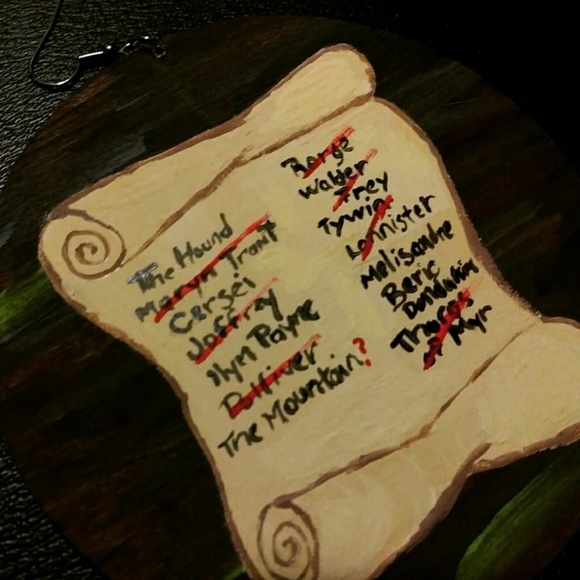 The Hound
Meryn Trant
Cersei
Joffrey
Ilyn Payne
Polliver
The Mountain?
Rorge
Walder
Frey
Tywin
Lannister
Melisandre
Beric
Dondarrion
Thoros
of Myr